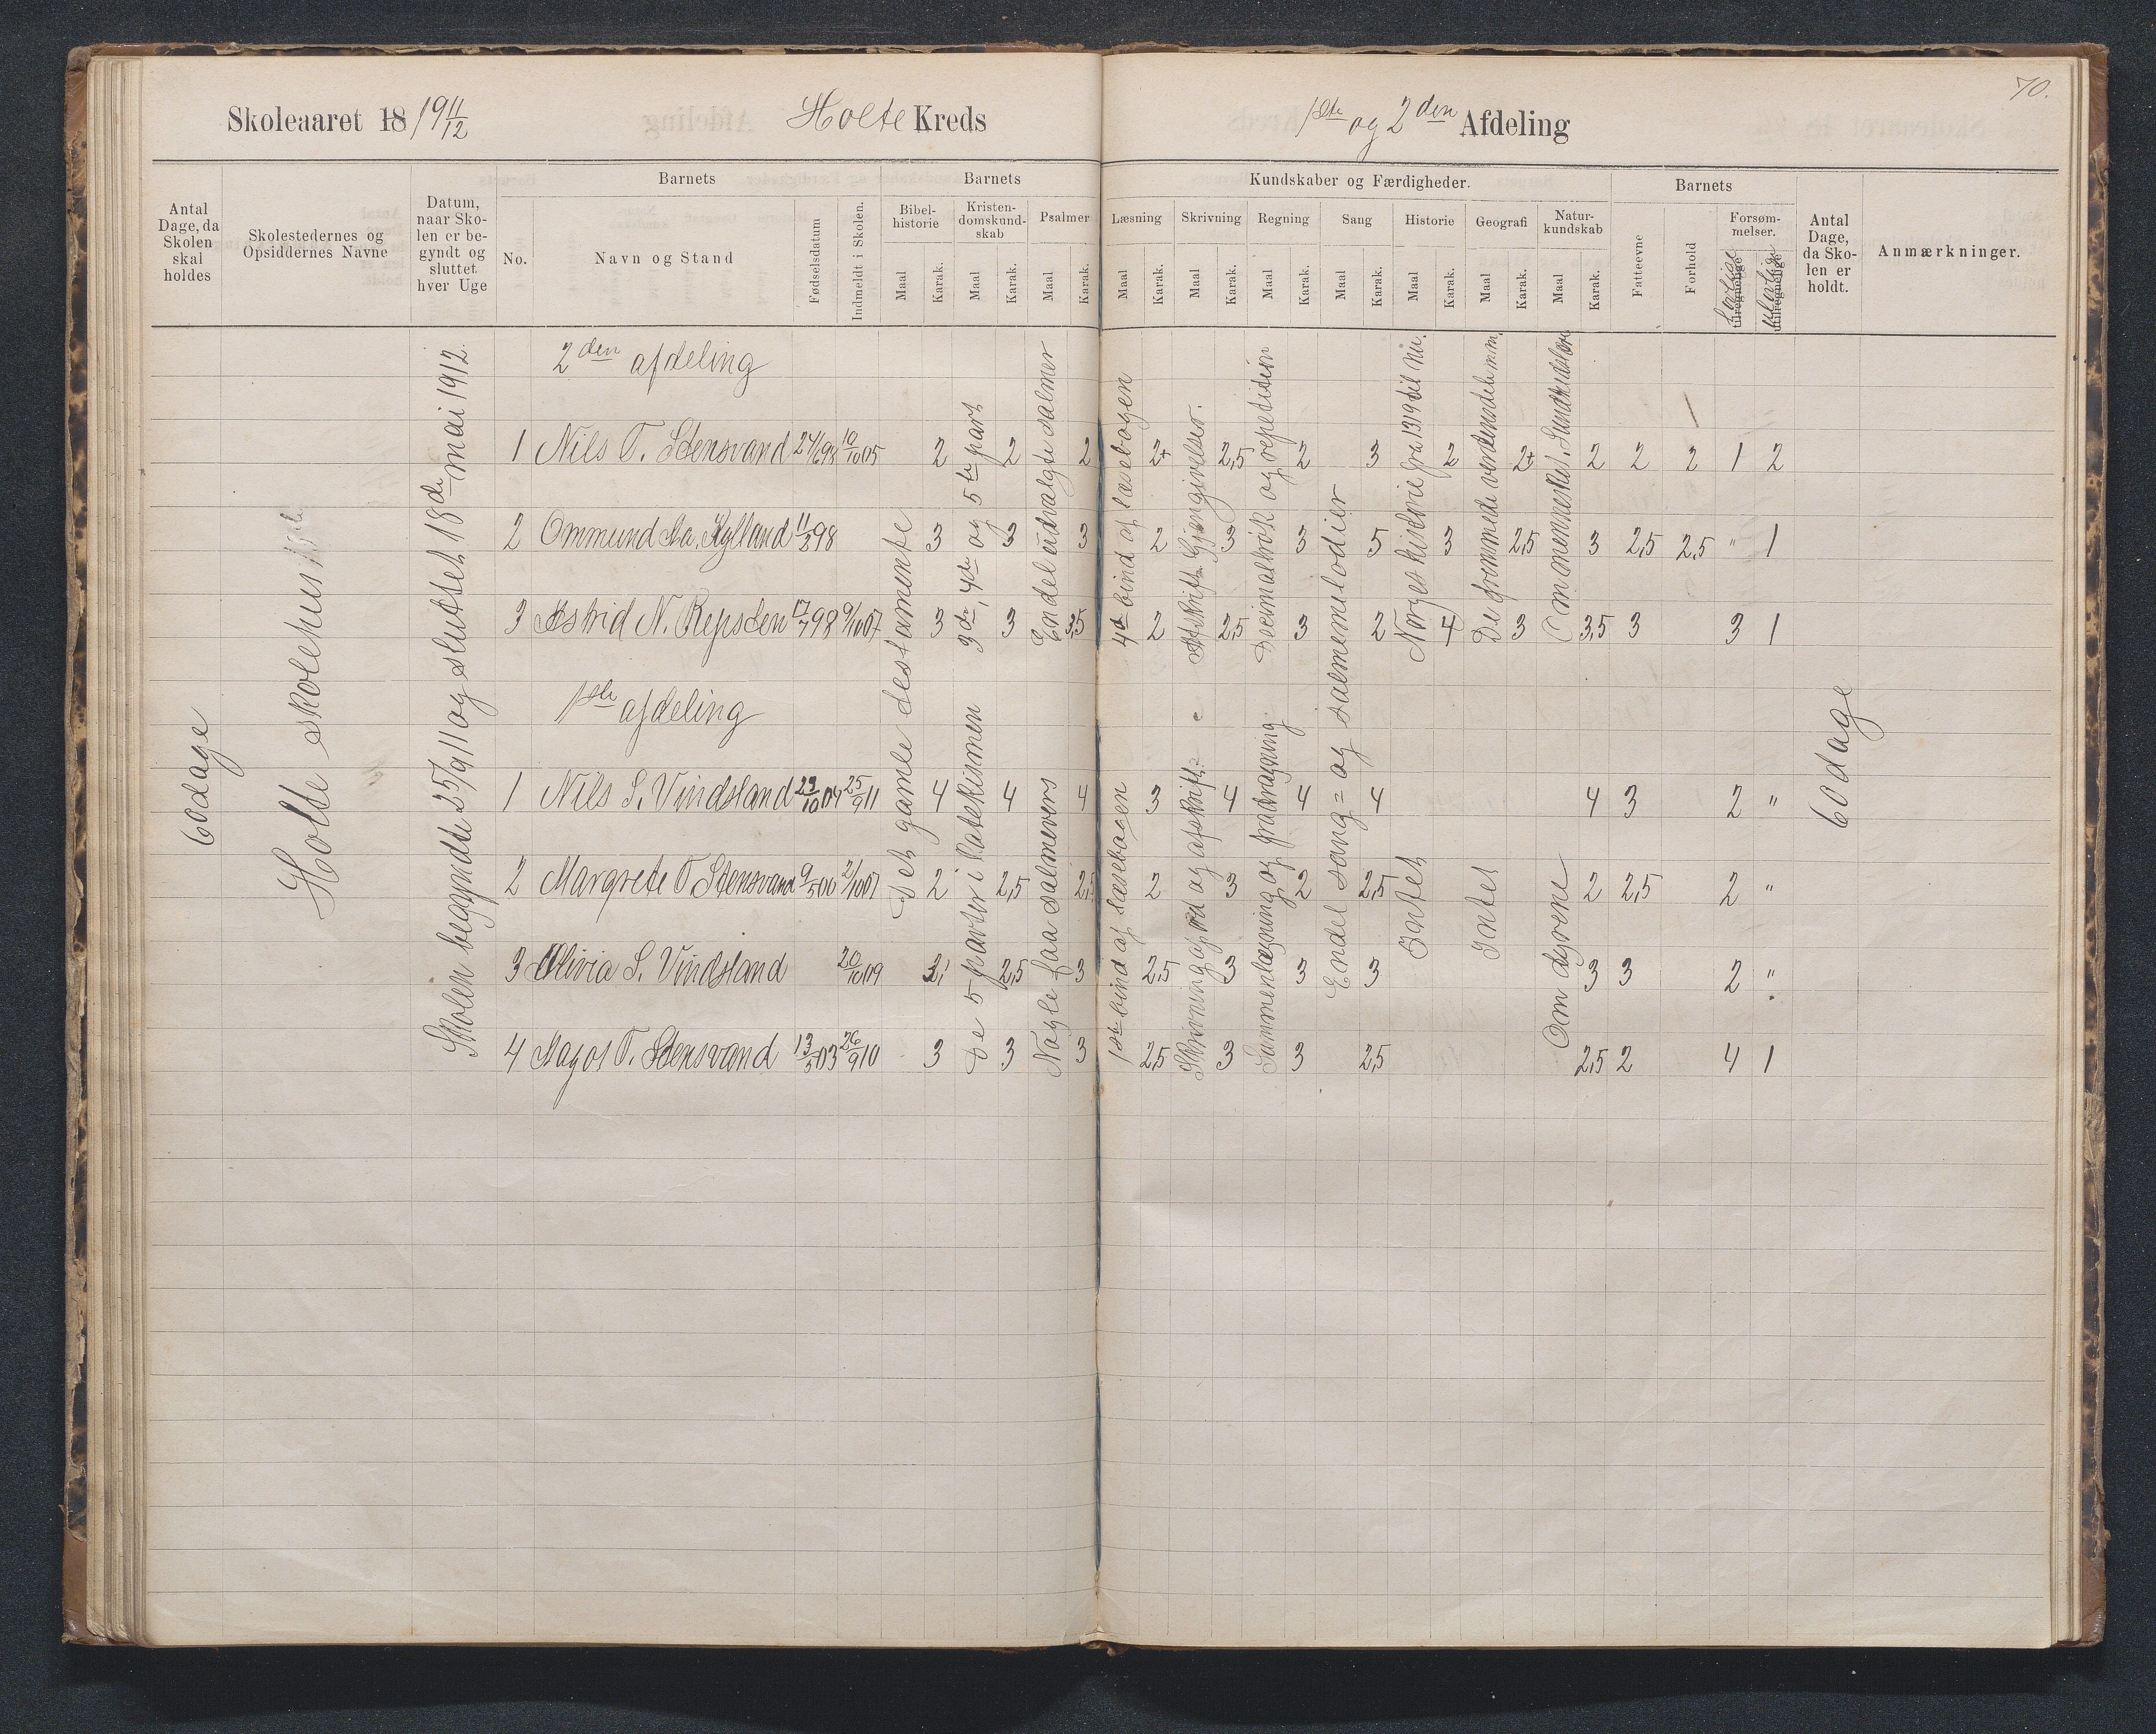 70.
Skoleaaret 18/1911/12 Holte Kreds 1ste og 2den Afdeling
Antal Dage, da Skolen skal holdes
Skolestedernes og Opsiddernes Navne
Datum, naar Skolen er begyndt og sluttet hver Uge
Barnets
No.
Navn og Stand
Fødselsdatum
Indmeldt i Skolen.
Barnets Kundskaber og Færdigheder.
Bibelhistorie
Kristendomskundskab
Psalmer
Læsning
Skrivning
Regning
Sang
Historie
Geografi
Naturkundskab
Maal Karak. Maal Karak. Maal Karak. Maal Karak. Maal Karak. Maal Karak. Maal Karak. Maal Karak. Maal Karak. Maal Karak.
Barnets
Fatteevne
Forhold
Forsømmelser.
lovlige
ulovlige
Antal Dage, da Skolen er holdt.
Anmærkninger.
60 dage
Holte skolehus
Skolen begyndte 25/9 11 og sluttet 18de mai 1912.
2den afdeling
1 Nils T. Stensvand 24/6 98 10/10 05 2 2 2 2+ 2,5 2 3 2 2+ 2 2 2 1 2
2 Ommund Aa. Kylland 11/3 98 3 3 3 2 3 3 5 3 2,5 3 2,5 2,5 " 1
3 Astrid N. Repsten 17/7 98 9/10 07 3 3 3,5 2 2,5 3 2 4 3 3,5 3 3 1
1ste afdeling
1 Nils S. Vindsland 23/10 04 25/9 11 4 4 4 3 4 4 4 4 3 2 "
2 Margrete T Stensvand 9/5 00 2/10 07 2 2,5 2,5 2 3 2 2,5 2 2,5 2 "
3 Olivia S. Vindsland 20/10 09 2,5 3 2,5 3 3 3 3 3 2 "
4 Magos T. Stensvand 13/5 03 26/9 10 3 3 3 2,5 3 3 2,5 2,5 2 4 1
Det gamle testamente
3de, 4de og 5te part
De 5 parter i katekismen
Endel udvalgte salmer
Nogle faa salmevers
4de bind af læsebogen
1ste bind af læsebogen
Afskrift. Gjengivelser.
Skrivning af ord og afskrift.
Decimalbrøk og repetition
Sammenlægning og fradragning
Endel sang= og salmemelodier
Norges historie fra 1319 til nu.
Intet
De fremmede verdensdele m.m.
Intet
Om mennesket. Sundhedslære
Om dyrene
60 dage